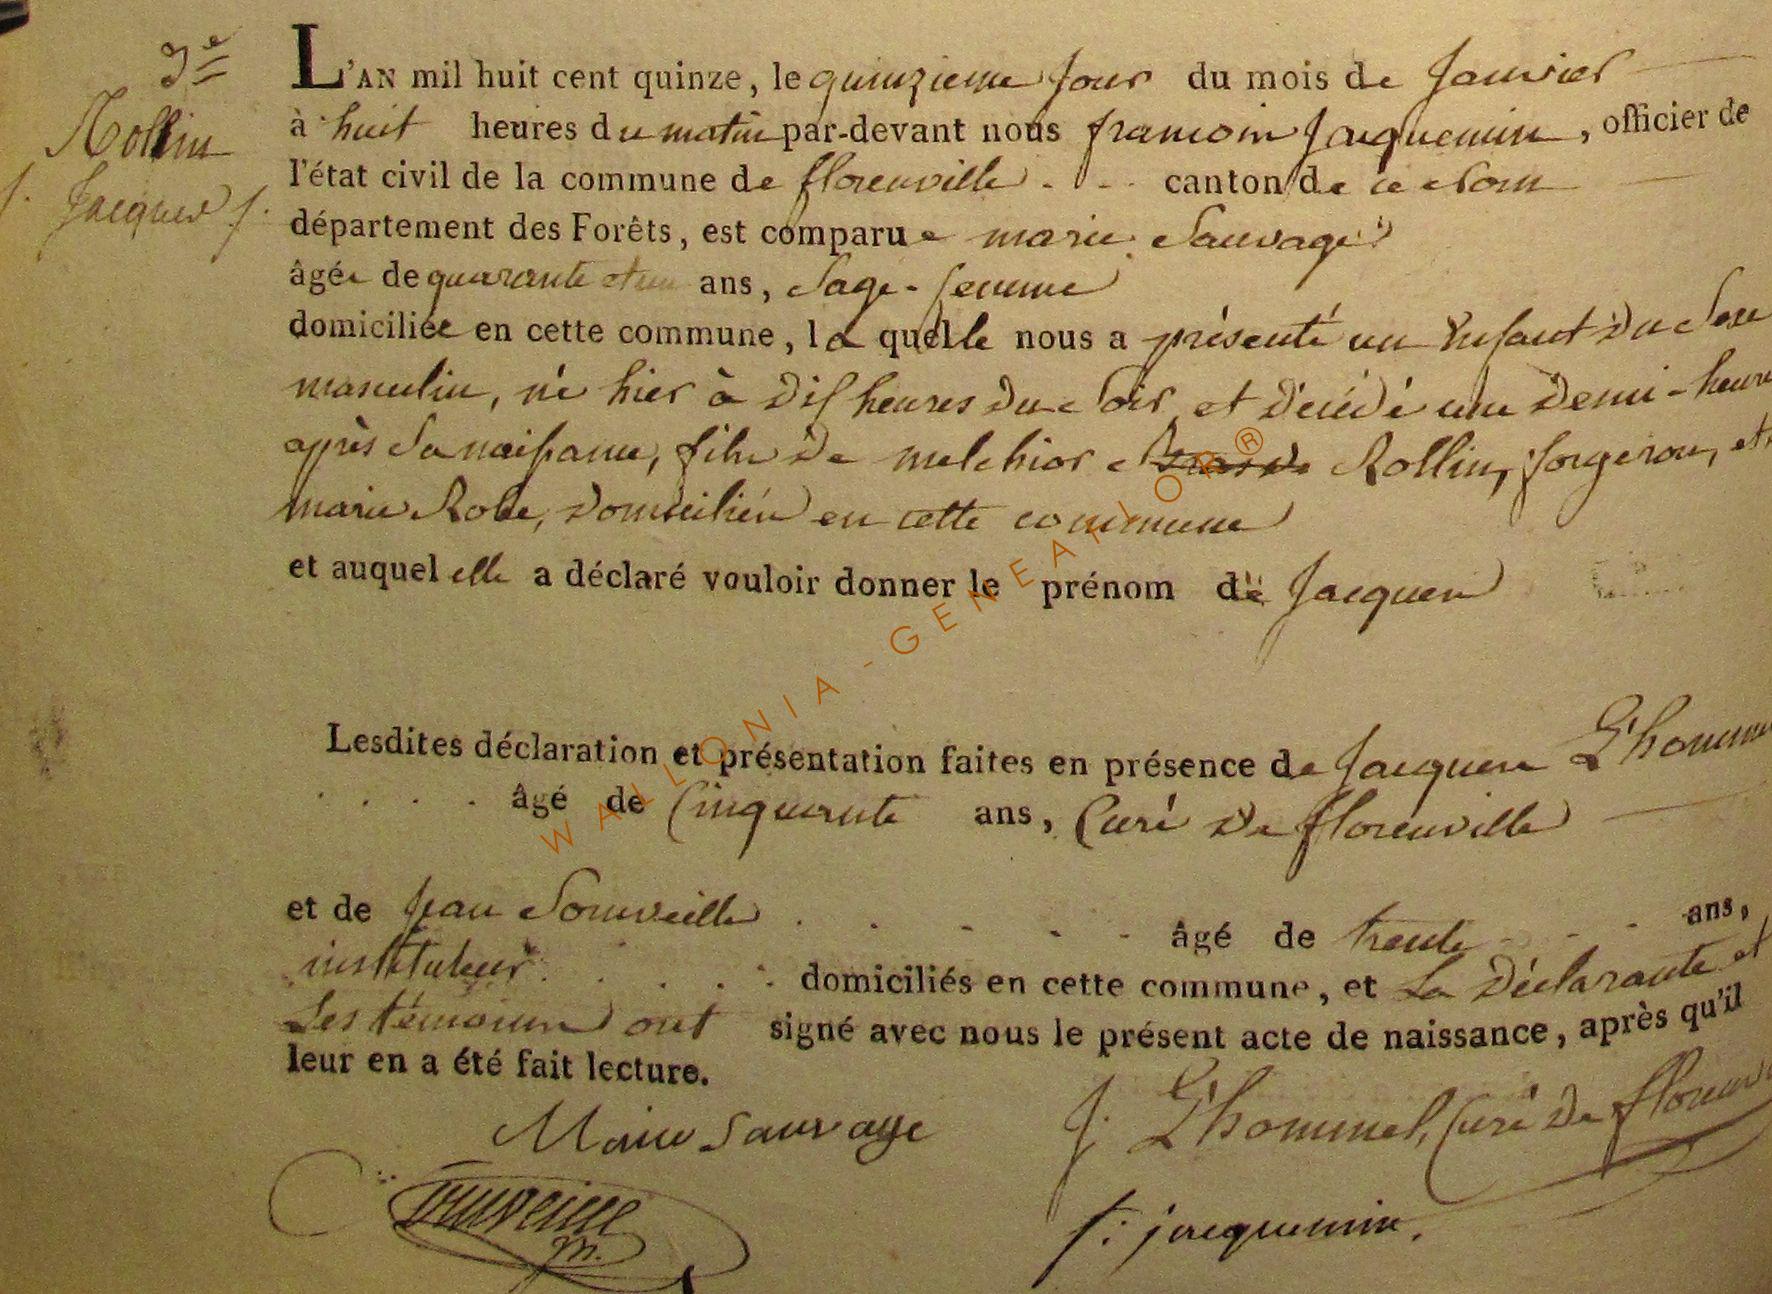 3e
Rollin
Jacques
L'AN mil huit cent quinze, le quinzieme jour du mois de Janvier
à huit heures du matin par-devant nous françois Jacquemin, officier de
l'état civil de la commune de florenville canton de ce nom
département des Forêts, est comparue marie Sauvage
âgée de quarante et un ans, Sage-femme
domiciliée en cette commune, la quelle nous a présenté un Enfant du Sexe
masculin, né hier à dix heures du Soir, et décédé une demi-heure
après Sa naissance, fils de melchior Rollin, forgeron, et
marie Robe, domiciliés en cette commune
et auquel elle a déclaré vouloir donner le prénom de Jacques
Lesdites déclaration et présentation faites en présence de Jacques L'hommel
âgé de Cinquante ans, Curé de florenville
et de Jean Souveille âgé de trente ans,
instituteur domiciliés en cette commune, et La déclarante et
Les témoins ont signé avec nous le présent acte de naissance, après qu'il
leur en a été fait lecture.
Marie Sauvage J. L'hommel, Curé de
f. jacquemin.
WALLONIA-GENEALOR®